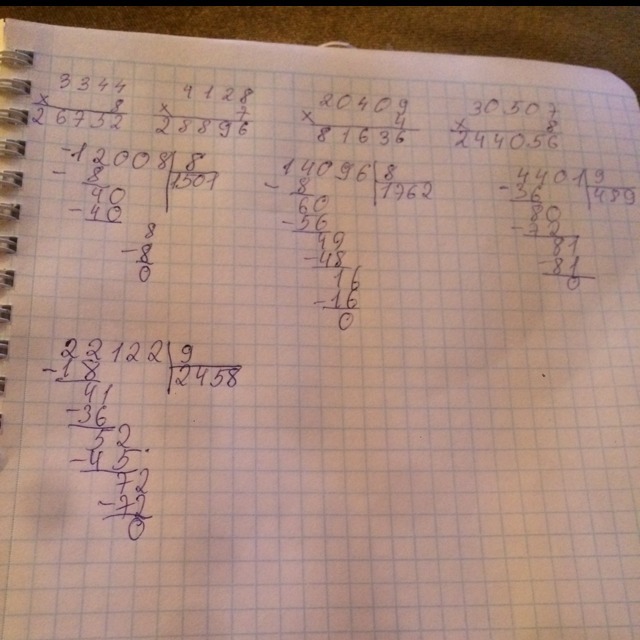 3344 4128 20409 30507
× 8 × 7 × 4 × 8
26752 28896 81636 244056
-12008 8 14096 8 44019 9
- 8 1501 - 8 1762 - 36 489
40 60 80
- 40 - 56 - 72
8 49 81
- 8 - 48 - 81
0 16 0
- 16
0
22122 9
- 18 2458
41
- 36
52
- 45
72
- 72
0